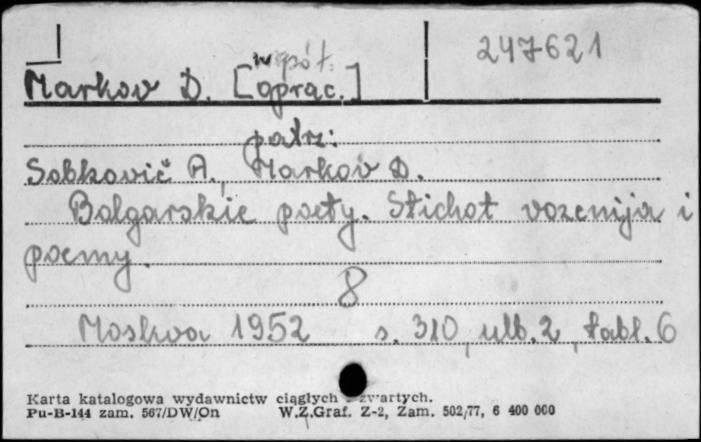 247621
współ.
Markov D. [oprac.]
patrz:
Sobkovič A., Markov D.
Bolgarskie poety. Stichot vorenija i
poemy.
8
Moskva 1952 s. 310, ulb. 2, tabl. 6
Karta katalogowa wydawnictw ciągłych i zwartych.
Pu-B-144 zam. 567/DW/On W.Z.Graf. Z-2, Zam. 502/77, 6 400 000